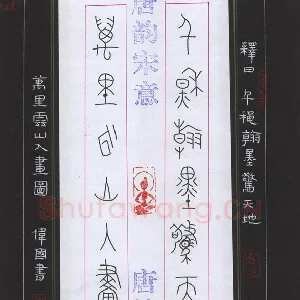 釋曰 千秋翰墨驚天地
千秋翰墨驚天
唐韵宋意
唐
萬里雲山入畫
萬里雲山入畫圖 偉國書